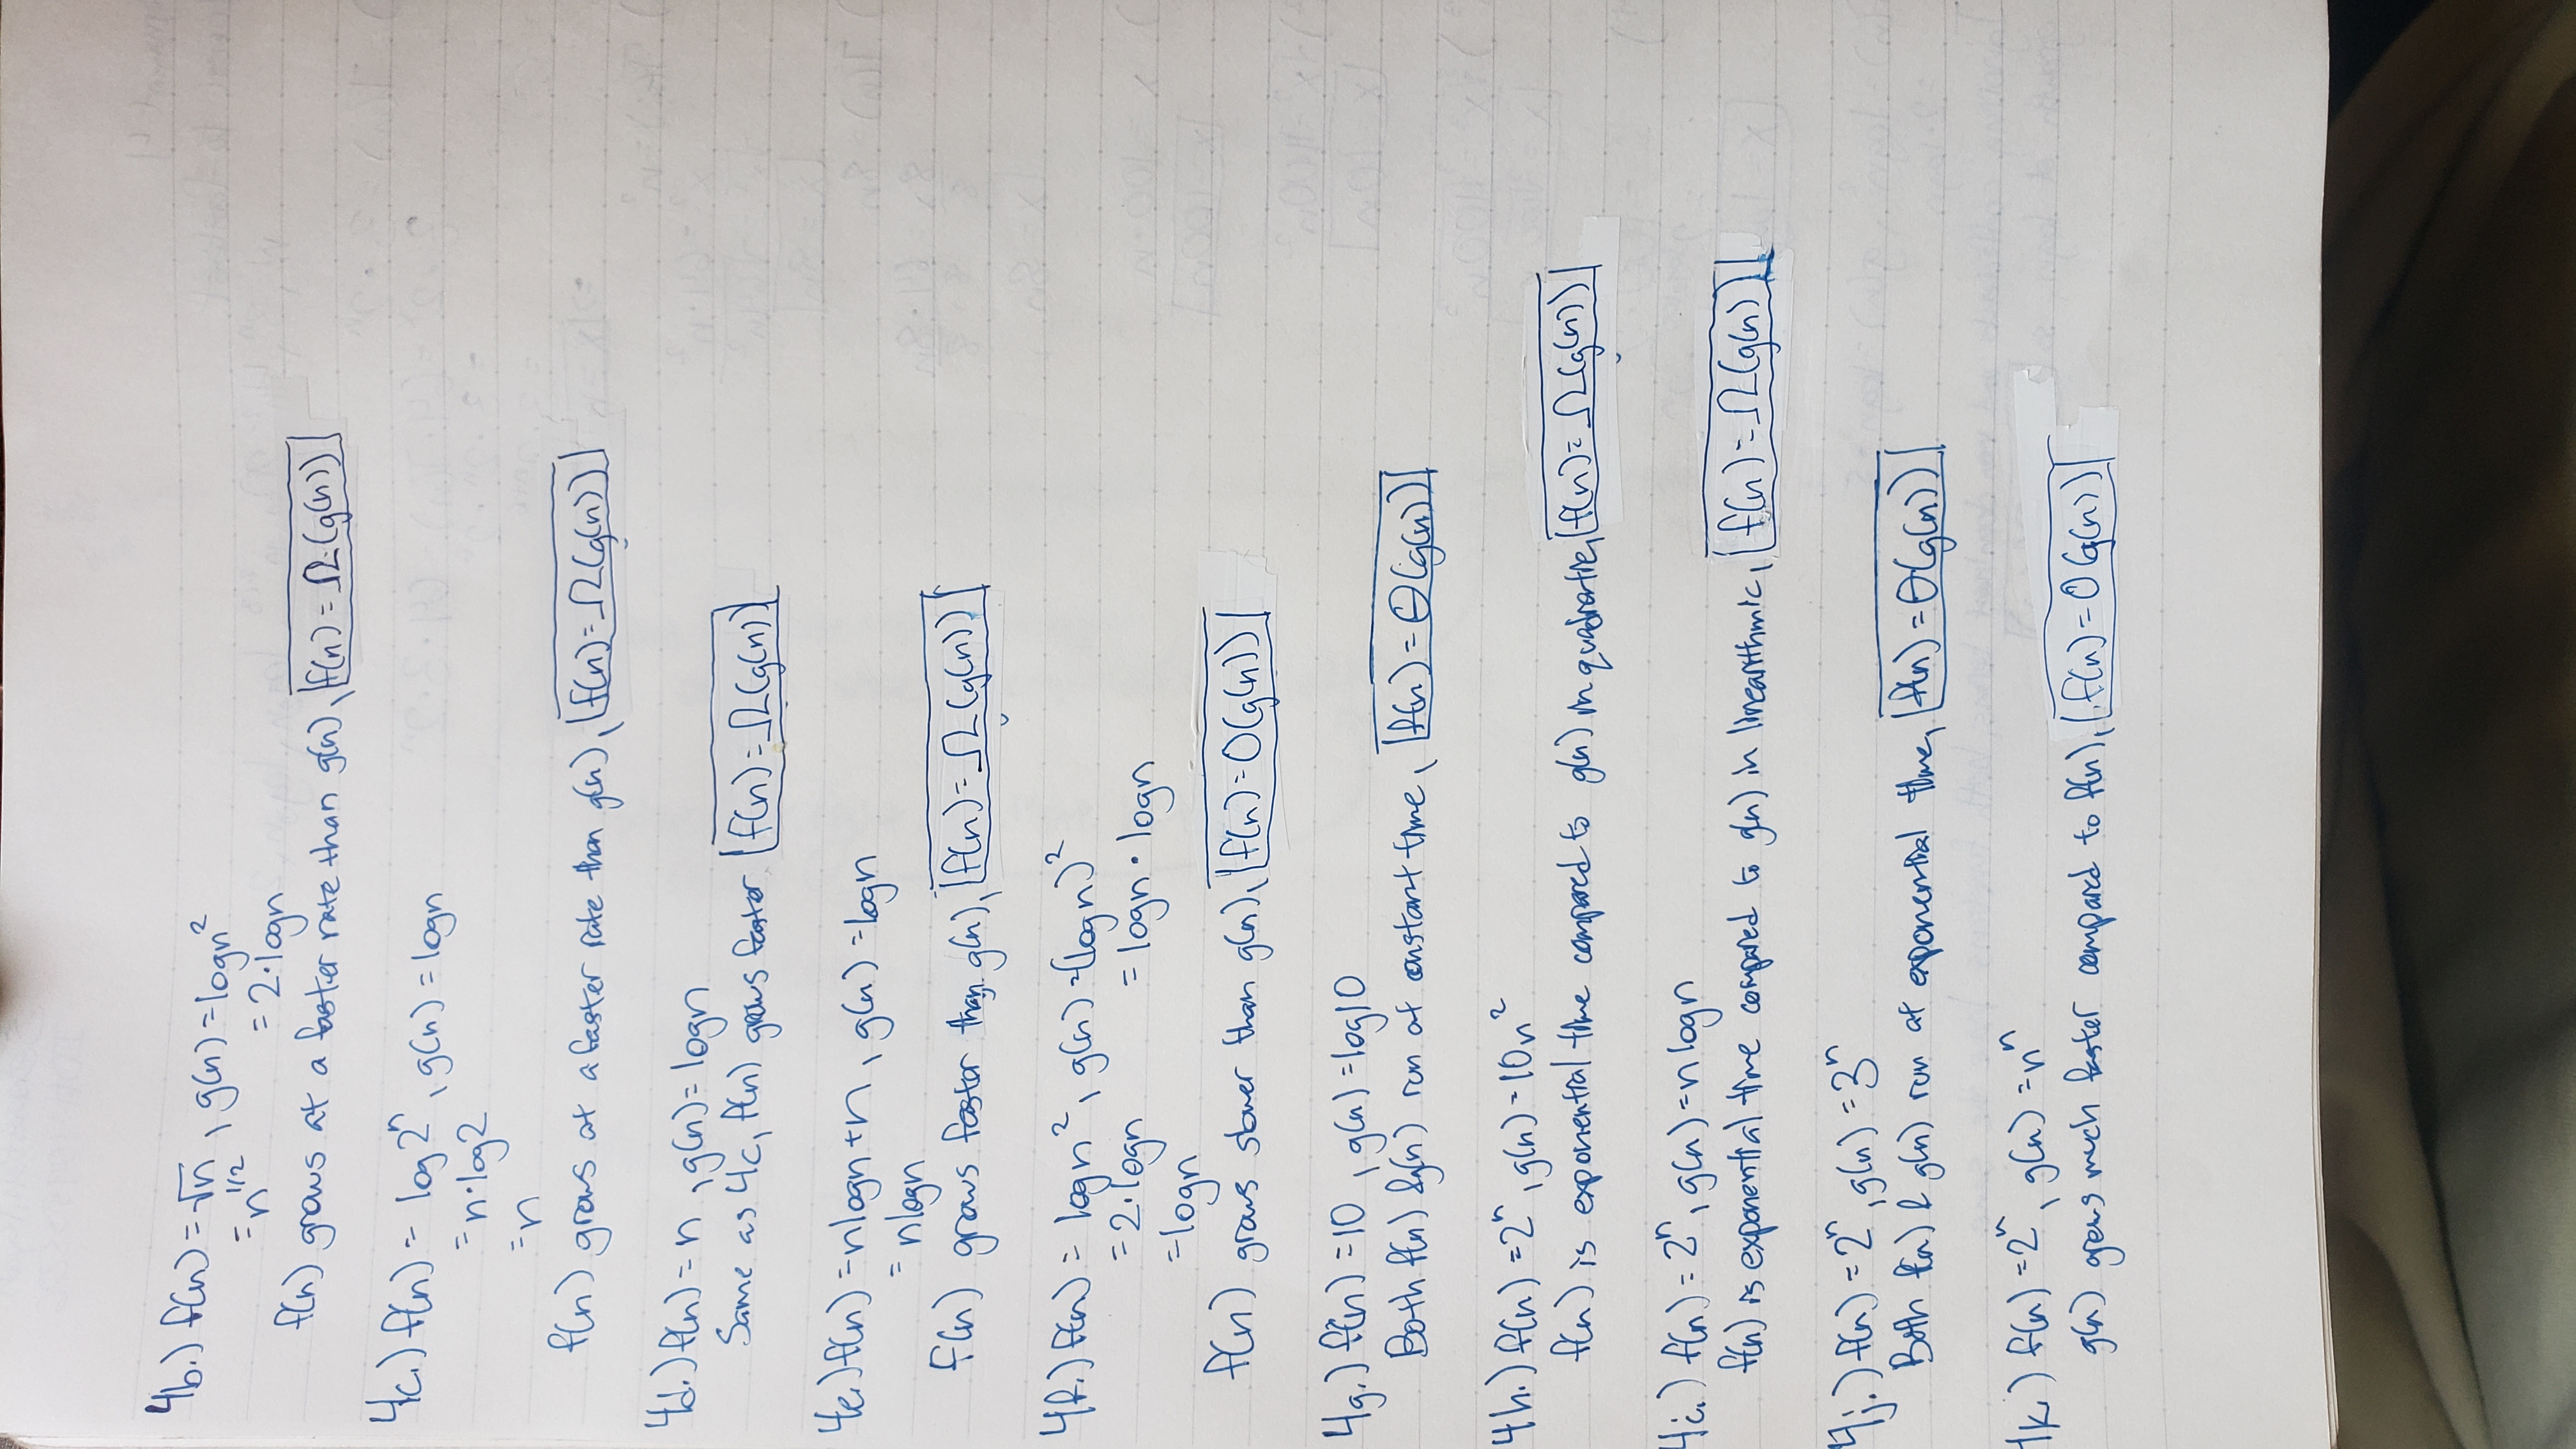 4b.) f(n) = √n , g(n) = logn²
= n^1/2 = 2·logn
f(n) grows at a faster rate than g(n), f(n) = Ω(g(n))
4c.) f(n) = log2ⁿ , g(n) = logn
= n·log2
= n
f(n) grows at a faster rate than g(n), f(n) = Ω(g(n))
4d.) f(n) = n , g(n) = logn
Same as 4c, f(n) grows faster f(n) = Ω(g(n))
4e.) f(n) = nlogn + n , g(n) = logn
= nlogn
f(n) grows faster than g(n), f(n) = Ω(g(n))
4f.) f(n) = logn² , g(n) = (logn)²
= 2·logn = logn · logn
= logn
f(n) grows slower than g(n), f(n) = O(g(n))
4g.) f(n) = 10 , g(n) = log10
Both f(n) & g(n) run at constant time, f(n) = Θ(g(n))
4h.) f(n) = 2ⁿ , g(n) = 10n²
f(n) is exponential time compared to g(n) in quadratic, f(n) = Ω(g(n))
4i.) f(n) = 2ⁿ , g(n) = n logn
f(n) is exponential time compared to g(n) in linearithmic, f(n) = Ω(g(n))
4j.) f(n) = 2ⁿ , g(n) = 3ⁿ
Both f(n) & g(n) run at exponential time, f(n) = Θ(g(n))
4k.) f(n) = 2ⁿ , g(n) = nⁿ
g(n) grows much faster compared to f(n), f(n) = O(g(n))